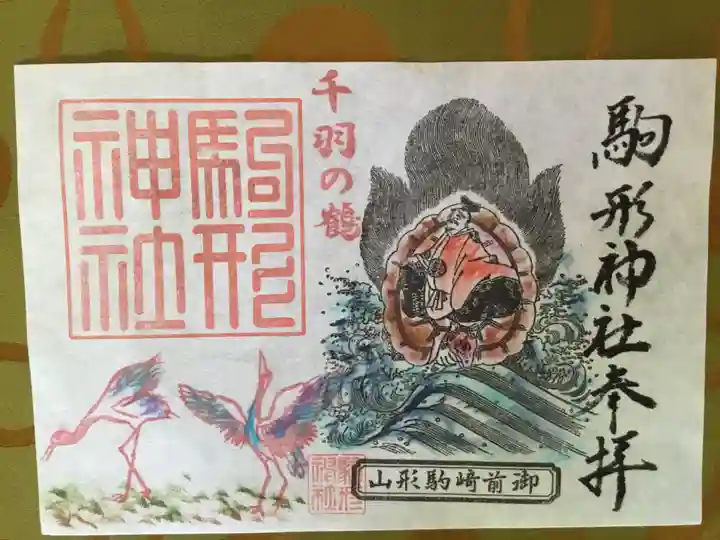 駒形神社奉拝
千羽の鶴
駒形
神社
御前崎駒形山
駒形
神社